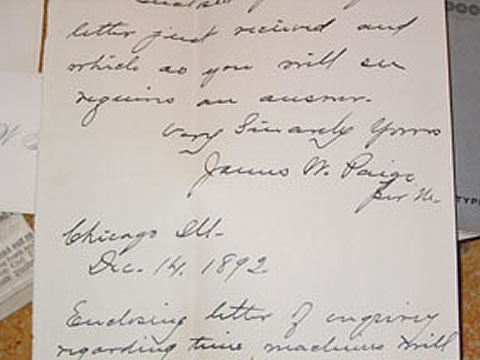 letter just received and
which as you will see
requires an answer.
Very Sincerely Yours
James W. Paige
per
Chicago Ill.
Dec. 14, 1892.
Enclosing letter of enquiry
regarding time, machines will